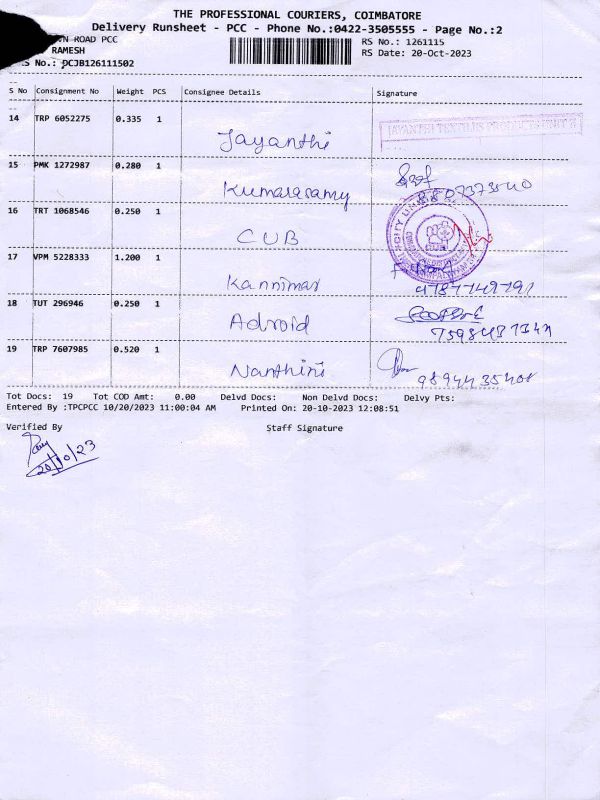 THE PROFESSIONAL COURIERS, COIMBATORE
Delivery Runsheet - PCC - Phone No.:0422-3505555 - Page No.:2
ROAD PCC
RS No.: 1261115
RAMESH
RS Date: 20-Oct-2023
S No.: PCJB126111502
S No Consignment No Weight PCS Consignee Details Signature
14 TRP 6052275 0.335 1
Jayanthi
JAYANTHI TEXTILES PRODUCTS UNIT II
15 PMK 1272987 0.280 1
Kumarasamy
8807373540
16 TRT 1068546 0.250 1
CUB
17 VPM 5228333 1.200 1
Kannimar
9787749791
18 TUT 296946 0.250 1
Adroid
19 TRP 7607985 0.520 1
Nanthini
9894435408
Tot Docs: 19 Tot COD Amt: 0.00 Delvd Docs: Non Delvd Docs: Delvy Pts:
Entered By :TPCPCC 10/20/2023 11:00:04 AM Printed On: 20-10-2023 12:08:51
Verified By Staff Signature
20/10/23